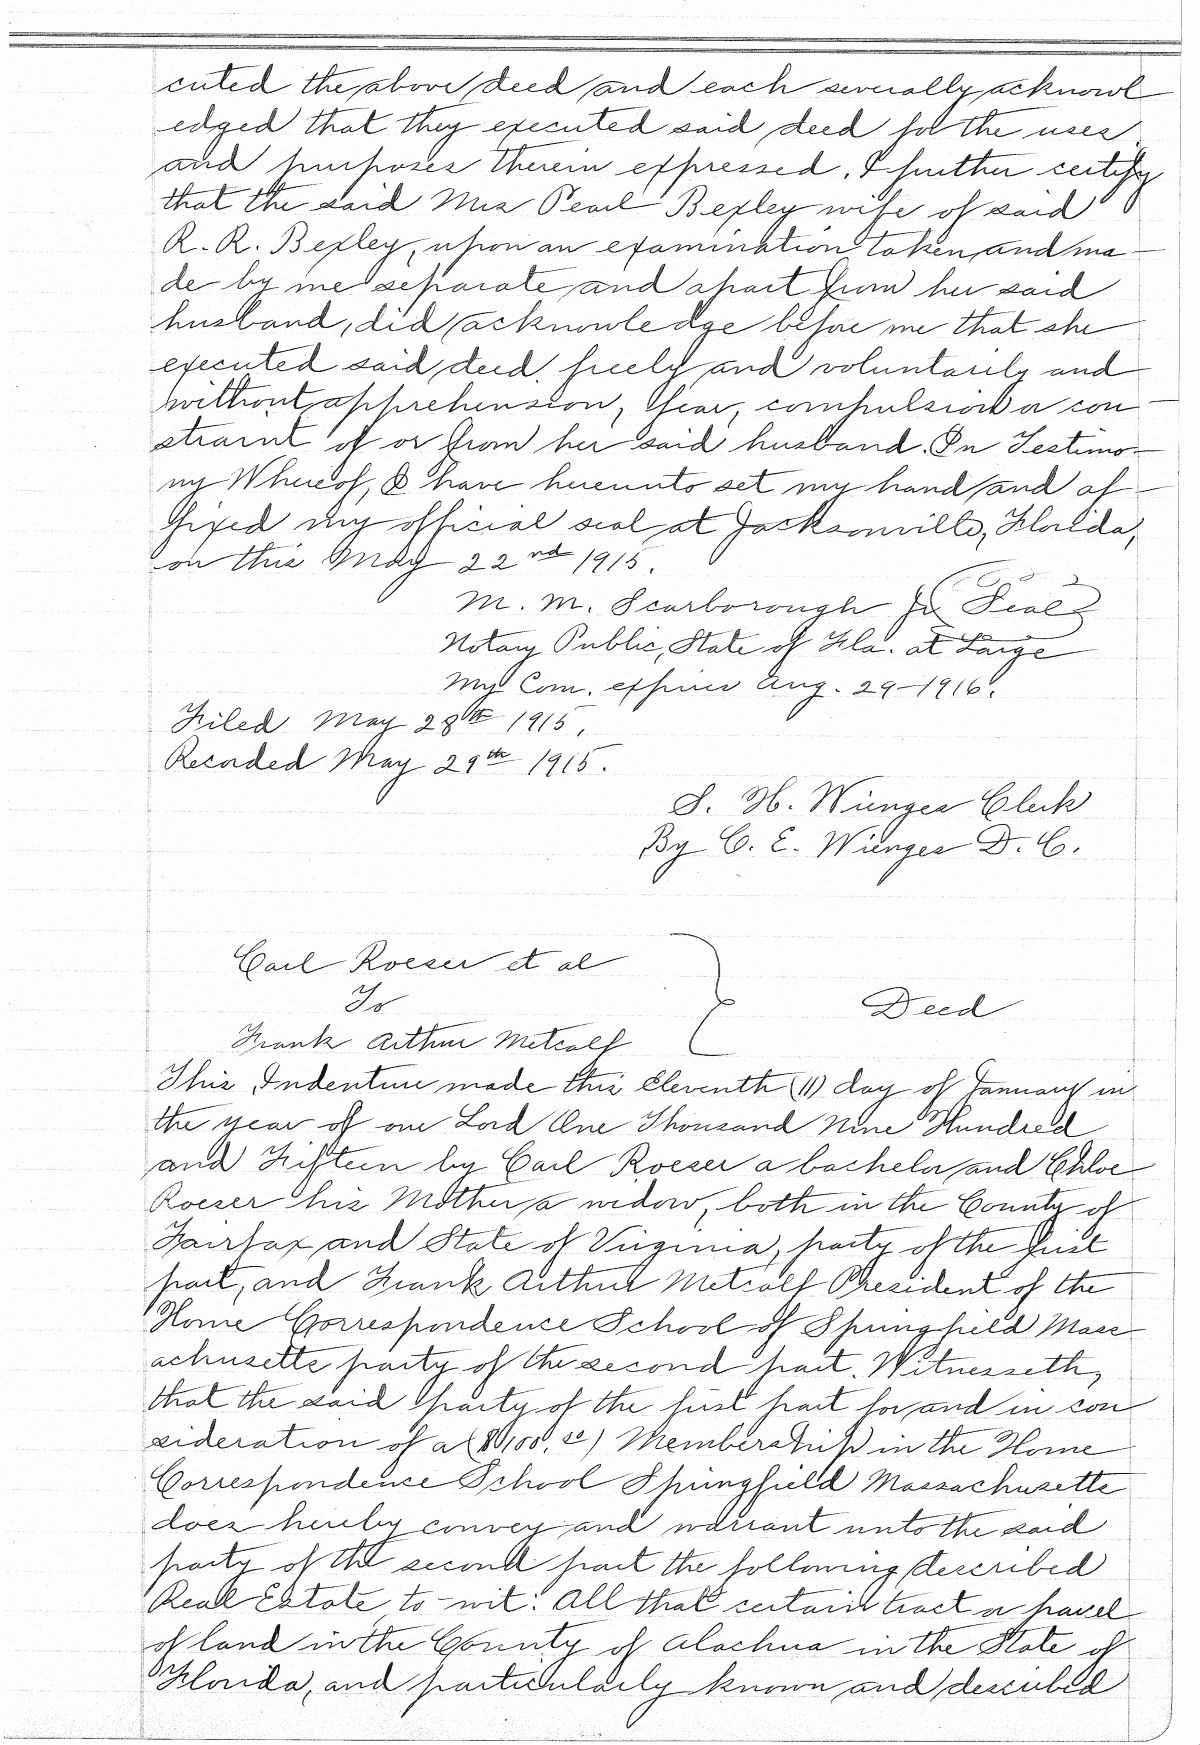 cuted the above deed and each severally acknowl
edged that they executed said deed for the uses
and purposes therein expressed. I further certify
that the said Mrs Pearl Bexley wife of said
R. R. Bexley, upon an examination taken and ma-
de by me separate and apart from her said
husband, did acknowledge before me that she
executed said deed freely and voluntarily and
without apprehension, fear, compulsion or con-
straint of or from her said husband. In Testimo-
ny Whereof, I have hereunto set my hand and af-
fixed my official seal at Jacksonville, Florida,
on this May 22nd 1915.
M. M. Scarborough Jr. Seal
Notary Public, State of Fla. at Large
My Com. expires Aug. 29-1916.
Filed May 28th 1915,
Recorded May 29th 1915.
S. H. Wienges Clerk
By C. E. Wienges D. C.
Carl Roeser et al
To
Deed
Frank Arthur Metcalf
This Indenture made this Eleventh (11) day of January in
the year of our Lord One Thousand Nine Hundred
and Fifteen by Carl Roeser a bachelor and Chloe
Roeser his Mother a widow, both in the County of
Fairfax and State of Virginia, party of the first
part, and Frank Arthur Metcalf President of the
Home Correspondence School of Springfield Mass
achusetts party of the second part. Witnesseth,
that the said party of the first part for and in con
sideration of a ($100.00) Membership in the Home
Correspondence School Springfield Massachusetts
does hereby convey and warrant unto the said
party of the second part the following described
Real Estate to-wit: All that certain tract or parcel
of land in the County of Alachua in the State of
Florida, and particularly known and described